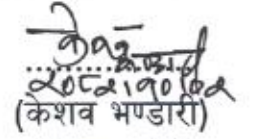 केशव
२०८२।१०।०२
(केशव भण्डारी)